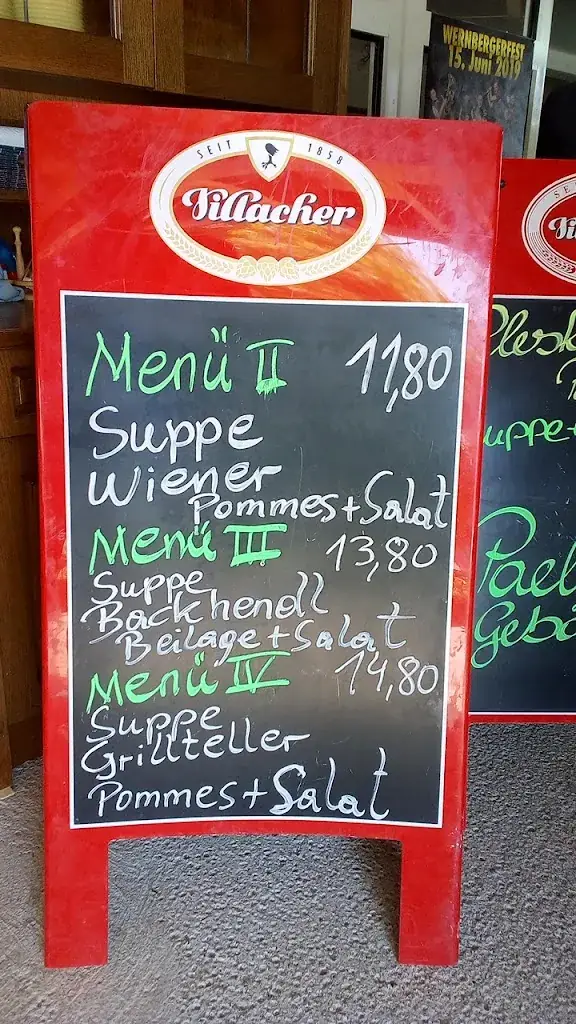 WERNBERGERFEST
15. Juni 2019
SEIT 1858
Villacher
Menü II 11,80
Suppe
Wiener
Pommes + Salat
Menü III 13,80
Suppe
Backhendl
Beilage + Salat
Menü IV 14,80
Suppe
Grillteller
Pommes + Salat